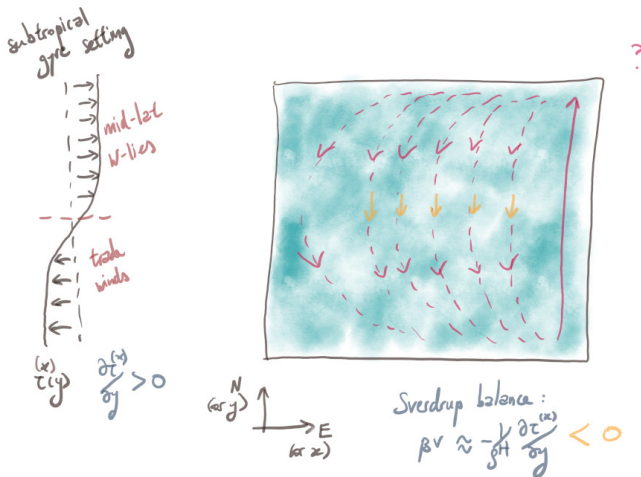 subtropical
gyre setting
?
mid-lat
W-lies
trade
winds
τ^(x)(y) ∂τ^(x)/∂y > 0
N
(or y)
E
(or x)
Sverdrup balance:
βv ≈ -1/ρH ∂τ^(x)/∂y < 0